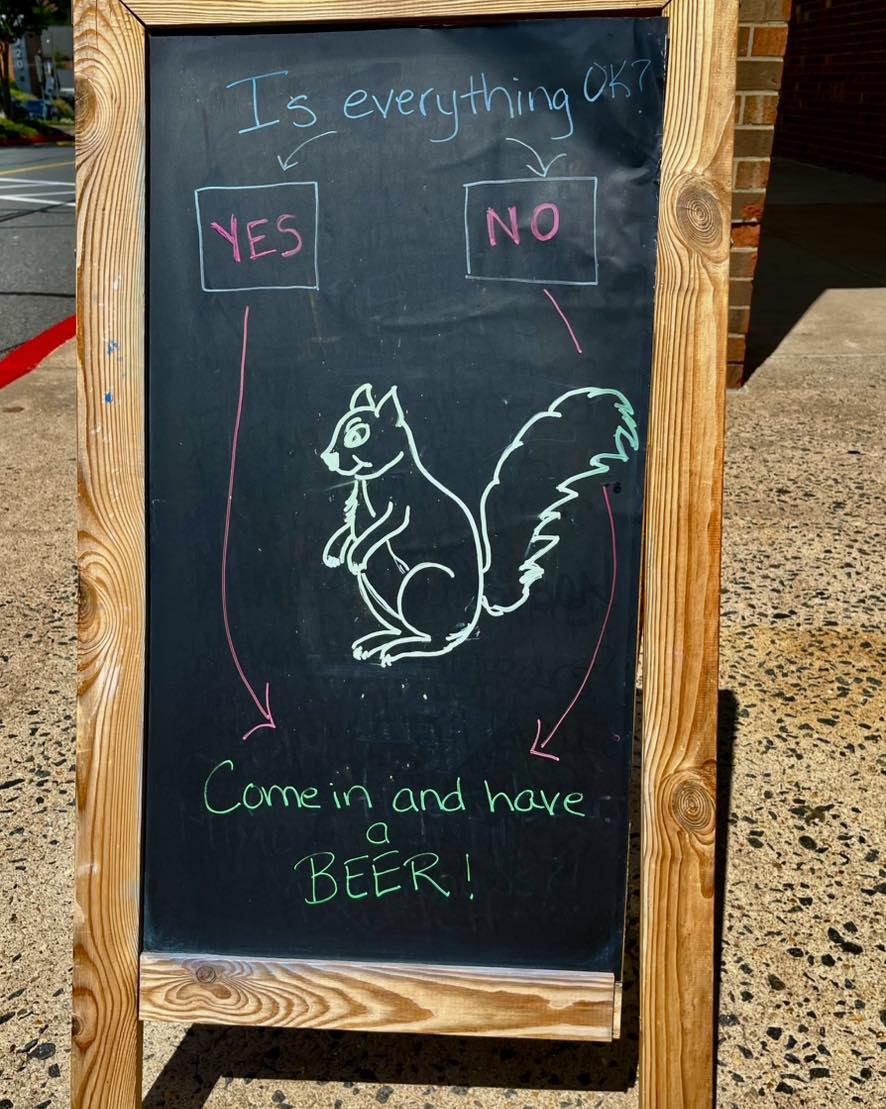 Is everything OK?
YES NO
Come in and have
a
BEER!